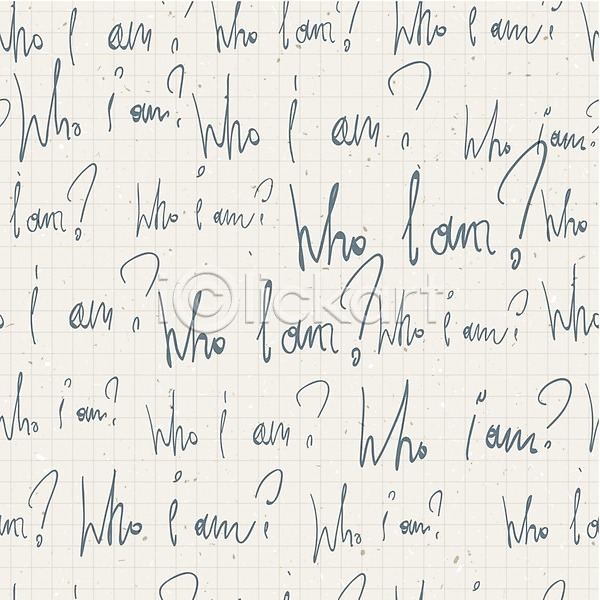 Who I am? Who I am? Who I am?
Who i am? Who I am? Who i am?
I am? Who I am? Who I am? Who
I am? Who I am? Who I am? Who
Who i am? Who I am? Who i am?
am? Who I am? Who i am? Who I a
iclickart